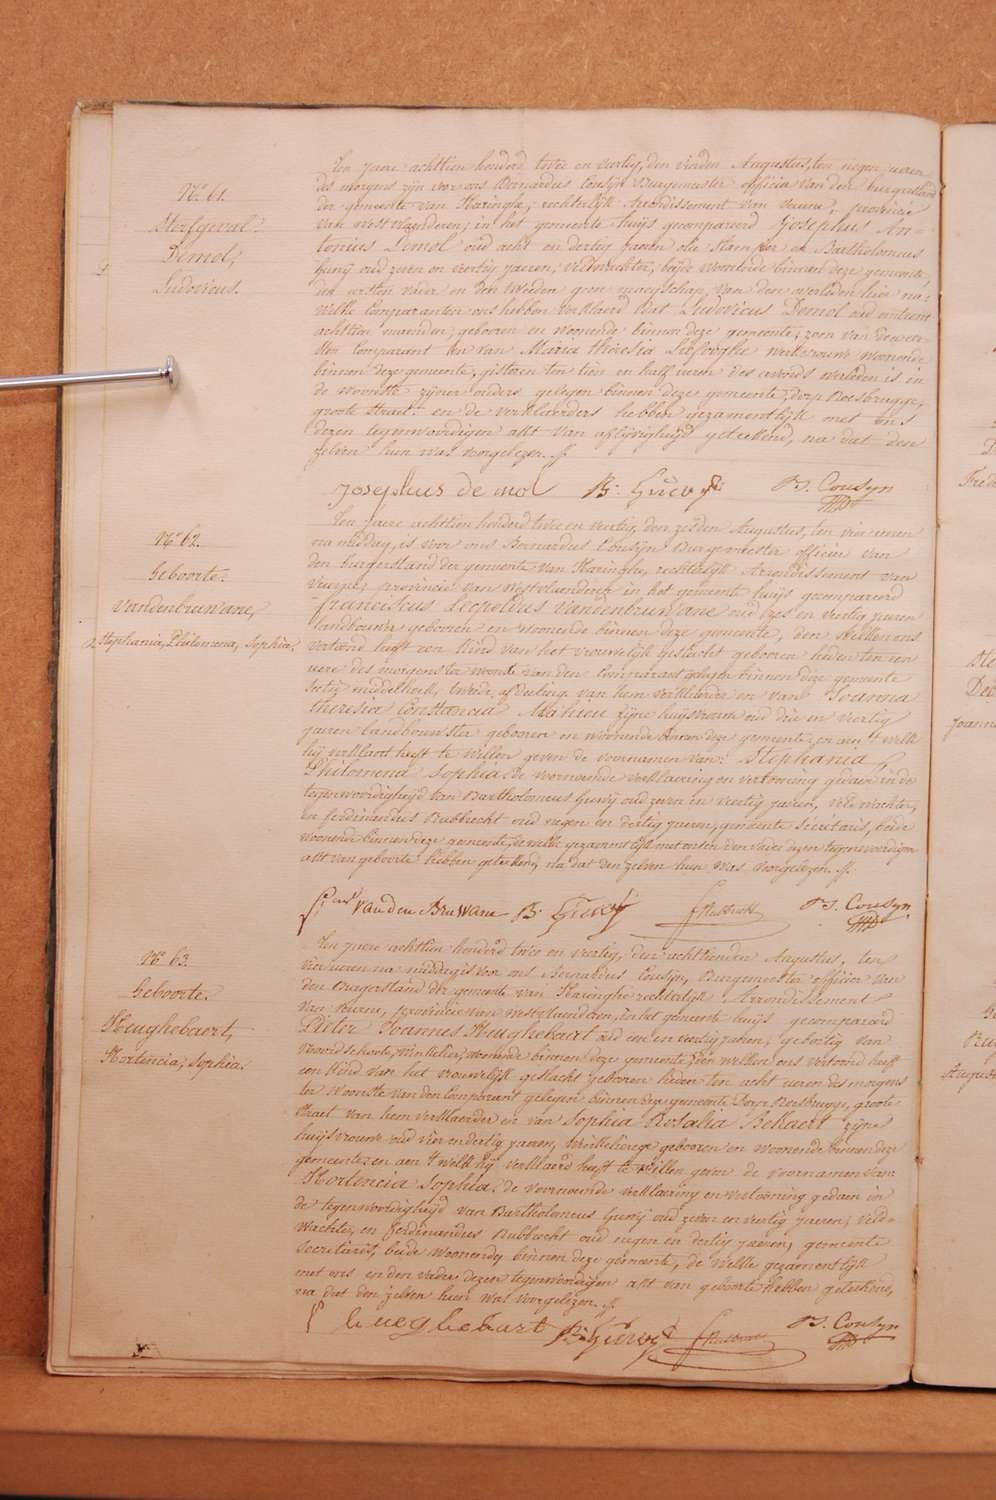 No 61.
Sterfgeval.
Demol,
Ludovicus.
Ten jaere achttien honderd twee en veertig, den vierden Augustus, ten negen uren
des morgens zijn voor ons Bernardus Cousijn Burgemeester officier van den burgerstand
der gemeente van Haringhe, rechterlijk Arrondissement van veurne, provincie
van westvlaenderen; in het gemeente huijs gecompareerd Josephus An-
tonius Demol oud acht en dertig jaeren olie stamper en Bartholomeus
Gurij oud zeven en veertig jaeren, veldwachter, beijde woonende binnen deze gemeente,
den eersten vader en den tweeden geen maegschap van den overleden hier na:
welke Comparanten ons hebben verklaerd dat Ludovicus Demol oud ontrent
achttien maenden, geboren en woonende binnen deze gemeente, zoon van den eer-
sten Comparant en van Maria theresia werkvrouw woonende
binnen deze gemeente, gisteren ten tien en half uren des avonds overleden is in
de woonste zijner ouders gelegen binnen deze gemeente, dorp Roesbrugge,
groote straet: en de verklaerders hebben gezamentlijk met ons
dezen tegenwoordigen akt van aflijvigheijd geteekend, na dat den
zelven hun was voorgelezen.
Josephus de mol B. Gurij B. Cousyn
No 62.
Geboorte.
Vandenbruwane,
Stephania, Philomena, Sophia.
Ten jaere achttien honderd twee en veertig, den zesden Augustus, ten vier uren
na middag, is voor ons Bernardus Cousijn Burgemeester officier van
den burgerstand der gemeente van Haringhe, rechterlijk Arrondissement van
veurne, provincie van westvlaenderen in het gemeente huijs gecompareerd
Franciscus Leopoldus Vandenbruwane oud zes en veertig jaeren
landbouwer geboren en woonende binnen deze gemeente, den welken ons
vertoond heeft een kind van het vrouwelijk geslacht geboren heden ten een
uere des morgens ter woonste van den Comparant gelegen binnen deze gemeente
sectij middelhoek, tweede afdeeling van hem verklaerder en van Joanna
theresia Constancia Mahieu zijne huijsvrouw oud drie en veertig
jaeren landbouwster geboren en woonende binnen deze gemeente, en aen 't welk
hij verklaert heeft te willen geven de voornamen van: Stephania,
Philomena Sophia. De voornoemde verklaering en vertooning gedaen in de
tegenwoordigheijd van Bartholomeus Gurij oud zeven en veertig jaeren, veldwachter,
en ferdinandus Rubbrecht oud negen en dertig jaeren, gemeente sécrétaris, beide
woonende binnen deze gemeente, de welke gezamentlijk met ons en den vader dezen tegenwoordigen
akt van geboorte hebben geteekend, na dat den zelven hun was voorgelezen.
van den Bruwane B. Gurij F Rubbrecht B. Cousyn
No 63.
Geboorte.
Heughebaert,
Hortencia, Sophia.
Ten jaere achttien honderd twee en veertig, den achttienden Augustus, ten
vier ueren na middag is voor ons Bernardus Cousijn, Burgemeester officier van
den Burgerstand der gemeente van Haringhe rechterlijk Arrondissement
van veurne, provincie van westvlaenderen, in het gemeente huijs gecompareerd
Pieter Joannes Heughebaert oud een en veertig jaeren, geboortig van
Noordschoote, winkelier, woonende binnen deze gemeente, den welken ons vertoond heeft
een kind van het vrouwelijk geslacht geboren heden ten acht ueren des morgens
ter woonste van den Comparant gelegen binnen deze gemeente Dorp Roesbrugge, groote
straet van hem verklaerder en van Sophia Rosalia Bekaert zijne
huijsvrouw oud vier en dertig jaeren, winkelierege geboren en woonende binnen deze
gemeente: en aen 't welk hij verklaerd heeft te willen geven de voornamen van:
Hortencia Sophia. de voornoemde verklaering en vertooning gedaen in
de tegenwoordigheijd van Bartholomeus Gurij oud zeven en veertig jaeren, veld-
wachter, en ferdinandus Rubbrecht oud negen en dertig jaeren, gemeente
secretaris, beide woonende binnen deze gemeente, de welke gezamentlijk
met ons en den vader dezen tegenwoordigen akt van geboorte hebben geteekend,
na dat den zelven hun was voorgelezen.
heughebaert B. Gurij F Rubbrecht B. Cousyn